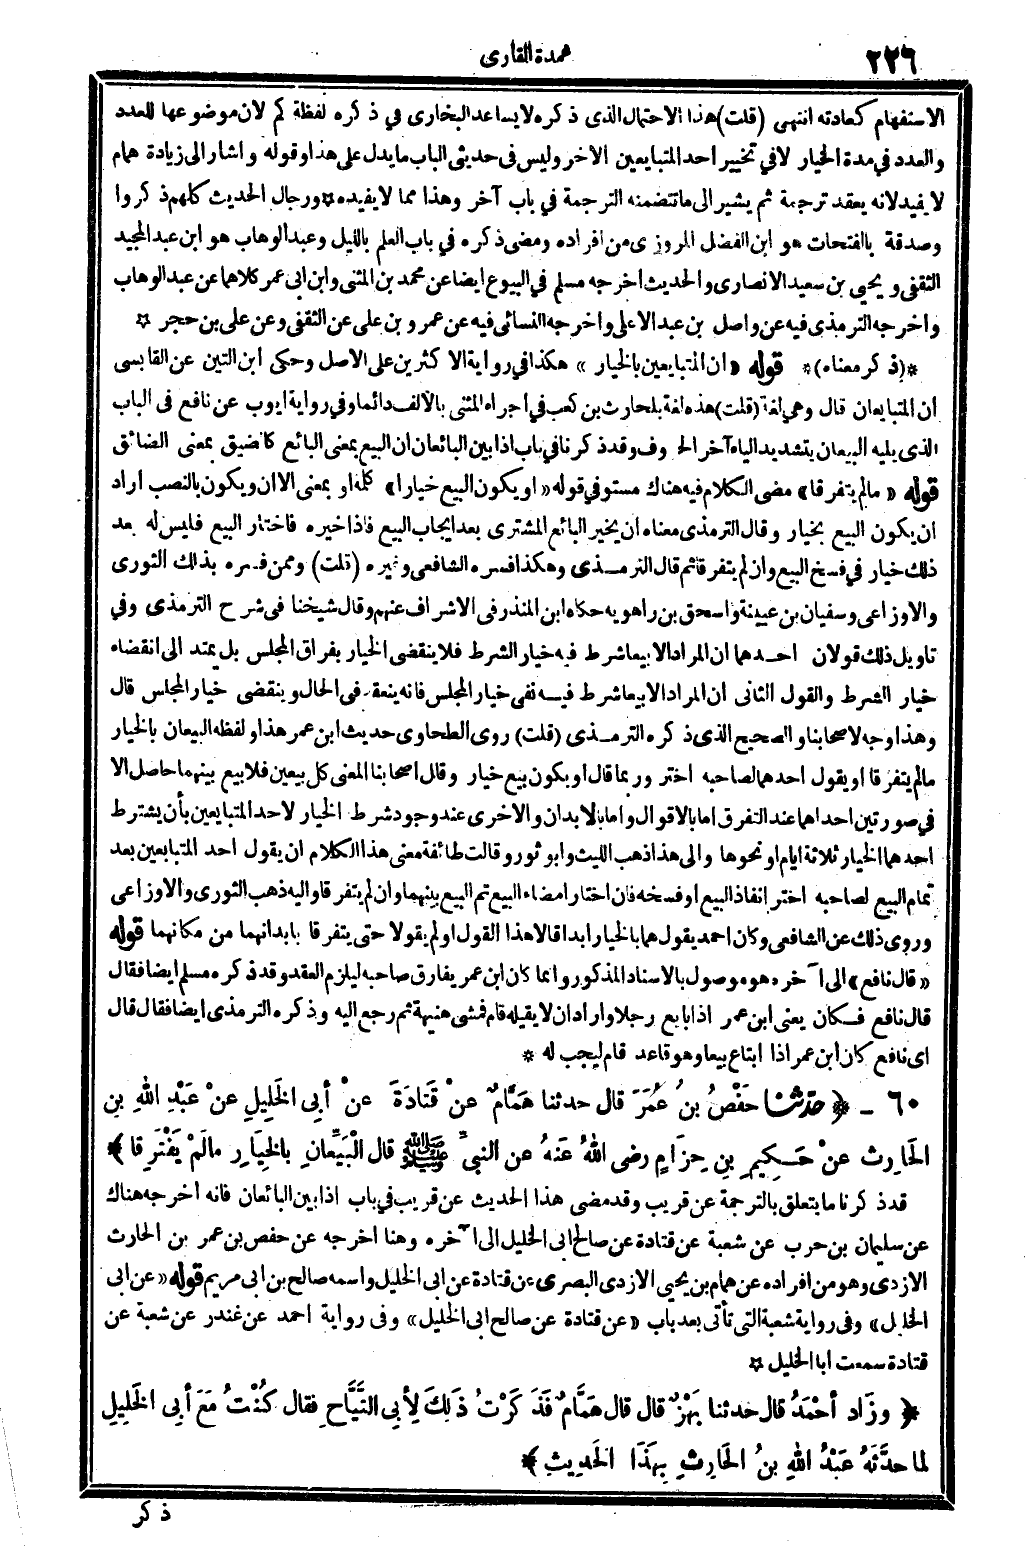 ٢٢٦
عمدة القارى
الاستفهام كعادته انتهى (قلت) هذا الاحتمال الذى ذكره لا يساعد البخارى في ذكره لفظة كم لان موضوعها للعدد
والعدد في مدة الخيار لا في تخيير احد المتبايعين الآخر وليس فى حديثى الباب ما يدل على هذا وقوله واشار الى زيادة همام
لا يفيد لانه يعقد ترجمة ثم يشير الى ما تتضمنه الترجمة في باب آخر وهذا مما لا يفيده ☆ ورجال الحديث كلهم ذكروا
وصدقة بالفتحات هو ابن الفضل المروزى من افراده ومضى ذكره في باب العلم بالليل وعبد الوهاب هو ابن عبد المجيد
الثقفى ويحيى بن سعيد الانصارى والحديث اخرجه مسلم في البيوع ايضا عن محمد بن المثنى وابن ابى عمر كلاهما عن عبد الوهاب
واخرجه الترمذى فيه عن واصل بن عبد الاعلى واخرجه النسائى فيه عن عمرو بن على عن الثقفى وعن على بن حجر ☆
*(ذكر معناه)* قوله «ان المتبايعين بالخيار» هكذا في رواية الاكثرين على الاصل وحكى ابن التين عن القابسى
ان المتبايعان قال وهى لغة (قلت) هذه لغة بلحارث بن كعب في اجراء المثنى بالالف دائما وفي رواية ايوب عن نافع فى الباب
الذى يليه البيعان بتشديد الياء آخر الحروف وقد ذكرنا في باب اذا بين البائعان ان البيع بمعنى البائع كالضيق بمعنى الضائق
قوله «مالم يتفرقا» مضى الكلام فيه هناك مستوفي قوله «او يكون البيع خيارا» كلمة او بمعنى الا ان ويكون بالنصب اراد
ان يكون البيع بخيار وقال الترمذى معناه ان يخير البائع المشترى بعد ايجاب البيع فاذا خيره فاختار البيع فليس له بعد
ذلك خيار في فسخ البيع وان لم يتفرقا ثم قال الترمذى وهكذا فسره الشافعى وغيره (قلت) وممن فسره بذلك الثورى
والاوزاعى وسفيان بن عيينة واسحق بن راهويه حكاه ابن المنذر فى الاشراف عنهم وقال شيخنا فى شرح الترمذى وفي
تاويل ذلك قولان احدهما ان المراد الا بيعا شرط فيه خيار الشرط فلا ينقضى الخيار بفراق المجلس بل يمتد الى انقضاء
خيار الشرط والقول الثانى ان المراد الا بيعا شرط فيه نفى خيار المجلس فانه ينعقد فى الحال وينقضى خيار المجلس قال
وهذا وجه لاصحابنا والصحيح الذى ذكره الترمذى (قلت) روى الطحاوى حديث ابن عمر هذا ولفظه البيعان بالخيار
مالم يتفرقا او يقول احدهما لصاحبه اختر وربما قال او يكون بيع خيار وقال اصحابنا المعنى كل بيعين فلا بيع بينهما حاصل الا
في صورتين احداهما عند التفرق اما بالاقوال واما بالابدان والاخرى عند وجود شرط الخيار لاحد المتبايعين بأن يشترط
احدهما الخيار ثلاثة ايام او نحوها والى هذا ذهب الليث وابو ثور وقالت طائفة معنى هذا الكلام ان يقول احد المتبايعين بعد
تمام البيع لصاحبه اختر انفاذ البيع او فسخه فان اختار امضاء البيع تم البيع بينهما وان لم يتفرقا واليه ذهب الثورى والاوزاعى
وروى ذلك عن الشافعى وكان احمد يقول هما بالخيار ابدا قالا هذا القول او لم يقولا حتى يتفرقا بابدانهما من مكانهما قوله
«قال نافع» الى آخره هو موصول بالاسناد المذكور وانما كان ابن عمر يفارق صاحبه ليلزم العقد وقد ذكره مسلم ايضا فقال
قال نافع فكان يعنى ابن عمر اذا بايع رجلا واراد ان لا يقيله قام فمشى هنيهة ثم رجع اليه وذكره الترمذى ايضا فقال قال
اى نافع كان ابن عمر اذا ابتاع بيعا وهو قاعد قام ليجب له *
٦٠ - ﴿ حدثنا حَفْصُ بنُ عُمَرَ قال حدثنا هَمَّامٌ عنْ قَتَادَةَ عنْ أبي الخَلِيلِ عنْ عَبْدِ اللهِ بنِ
الحَارِثِ عنْ حَكِيمِ بنِ حِزَامٍ رضى اللهُ عَنهُ عن النبيِّ ﷺ قال الْبَيِّعانِ بالخِيَارِ مالَمْ يَفْتَرِقا ﴾
قد ذكرنا ما يتعلق بالترجمة عن قريب وقد مضى هذا الحديث عن قريب في باب اذا بين البائعان فانه اخرجه هناك
عن سليمان بن حرب عن شعبة عن قتادة عن صالح ابى الخليل الى آخره وهنا اخرجه عن حفص بن عمر بن الحارث
الازدى وهو من افراده عن همام بن يحيى الازدى البصرى عن قتادة عن ابى الخليل واسمه صالح بن ابى مريم قوله «عن ابى
الخليل» وفى رواية شعبة التى تأتى بعد باب «عن قتادة عن صالح ابى الخليل» وفى رواية احمد عن غندر عن شعبة عن
قتادة سمعت ابا الخليل ☆
﴿ وزَاد أحْمَدُ قال حدثنا بَهْزٌ قال قال هَمَّامٌ فَذَكَرْتُ ذَلِكَ لِأبي التَّيَّاحِ فقال كُنْتُ مَعَ أبي الخَلِيلِ
لما حدَّثَهُ عَبْدُ اللهِ بنُ الحَارِثِ بِهَذَا الحَدِيثِ ﴾
ذكر